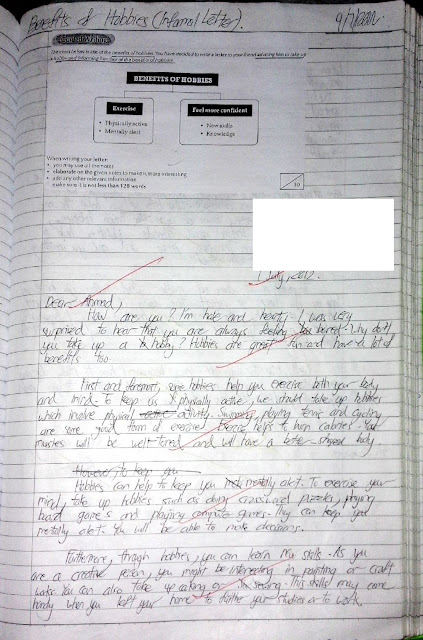 Benefits of Hobbies (Informal Letter).
Guided Writing
The notes below is one of the benefits of hobbies. You have decided to write a letter to your friend advising him to take up
a hobby and informing him of the benefits of hobbies.
BENEFITS OF HOBBIES
Exercise
• Physically active
• Mentally alert
Feel more confident
• New skills
• Knowledge
When writing your letter:
• you may use all the notes
• elaborate on the given notes to make it more interesting
• add any other relevant information
make sure it is not less than 120 words
10
1 July, 2012.
Dear Ahmad,
How are you? I'm hale and hearty. I was very
surprised to hear that you are always feeling bored. Why don't
you take up a hobby? Hobbies are great fun and have a lot of
benefits too.
First and foremost, some hobbies help you exercise both your body
and mind. To keep us physically active, we should take up hobbies
which involve physical activity. Swimming, playing tennis and cycling
are some good form of exercise. Exercise helps to burn calories. Your
muscles will be well-toned and will have a better-shaped body.
However, to keep you
Hobbies can help to keep you mentally alert. To exercise your
mind, take up hobbies such as doing crossword puzzles, playing
board games and playing computer games. They can keep you
mentally alert. You will be able to make decisions.
Furthermore, through hobbies, you can learn new skills. As you
are a creative person, you might be interesting in painting or craft
work. You can also take up cooking or sewing. This skills may come
handy when you left your home to further your studies or to work.